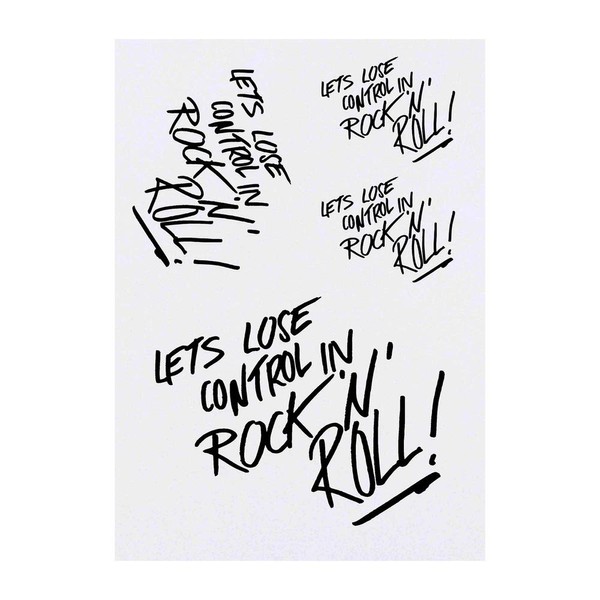 LETS LOSE
CONTROL IN
ROCK 'N'
ROLL!
LETS LOSE
CONTROL IN
ROCK 'N'
ROLL!
LETS LOSE
CONTROL IN
ROCK 'N'
ROLL!
LETS LOSE
CONTROL IN
ROCK 'N'
ROLL!